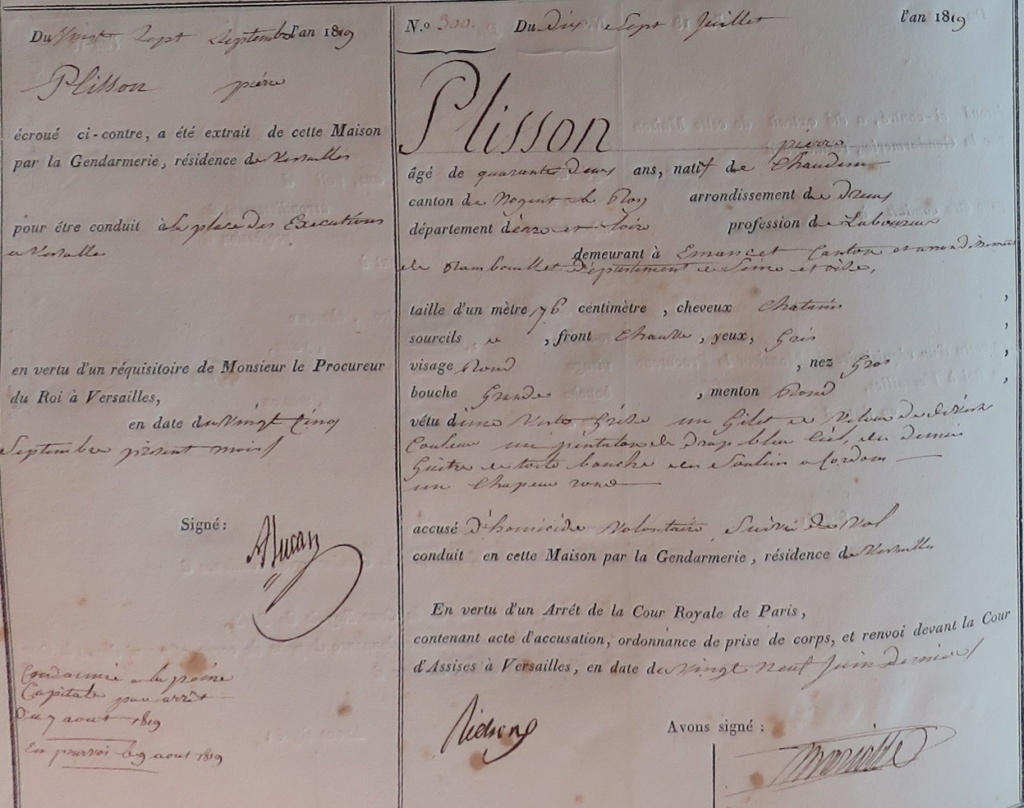 Du Vingt Sept Septembre l'an 1819
Plisson pierre
écroué ci-contre, a été extrait de cette Maison
par la Gendarmerie, résidence de Versailles
pour être conduit à la place des Executions
a Versailles
en vertu d'un réquisitoire de Monsieur le Procureur
du Roi à Versailles,
en date du Vingt Cinq
Septembre présent mois
Signé:
Condamné a la peine
Capitale par arrêt
Du 7 aout 1819
En pourvoi le 9 aout 1819
N.o 300. Du Dix Sept Juillet l'an 1819
Plisson
pierre
âgé de quarante deux ans, natif de Chaudon
canton de Nogent le Roy arrondissement de Dreux
département d'eure et loire profession de Laboureur
demeurant à Emancet Canton et arrondissement
de Rambouillet Département de Seine et oise,
taille d'un mètre 76 centimètre, cheveux Chatain
sourcils , front , yeux, Gris
visage Rond , nez Gros
bouche Grande , menton Rond
vêtu d'une Veste Grise un Gilet de Velour de
Couleur un pentalon de Drap bleu Ciel, des Demie
Guêtre de toile des Soulier a Cordons
un Chapeau rond
accusé d'homicide Volontaire Suivi de Vol
conduit en cette Maison par la Gendarmerie, résidence de Versailles
En vertu d'un Arrêt de la Cour Royale de Paris,
contenant acte d'accusation, ordonnance de prise de corps, et renvoi devant la Cour
d'Assises à Versailles, en date du Vingt Neuf Juin Dernier
Avons signé: